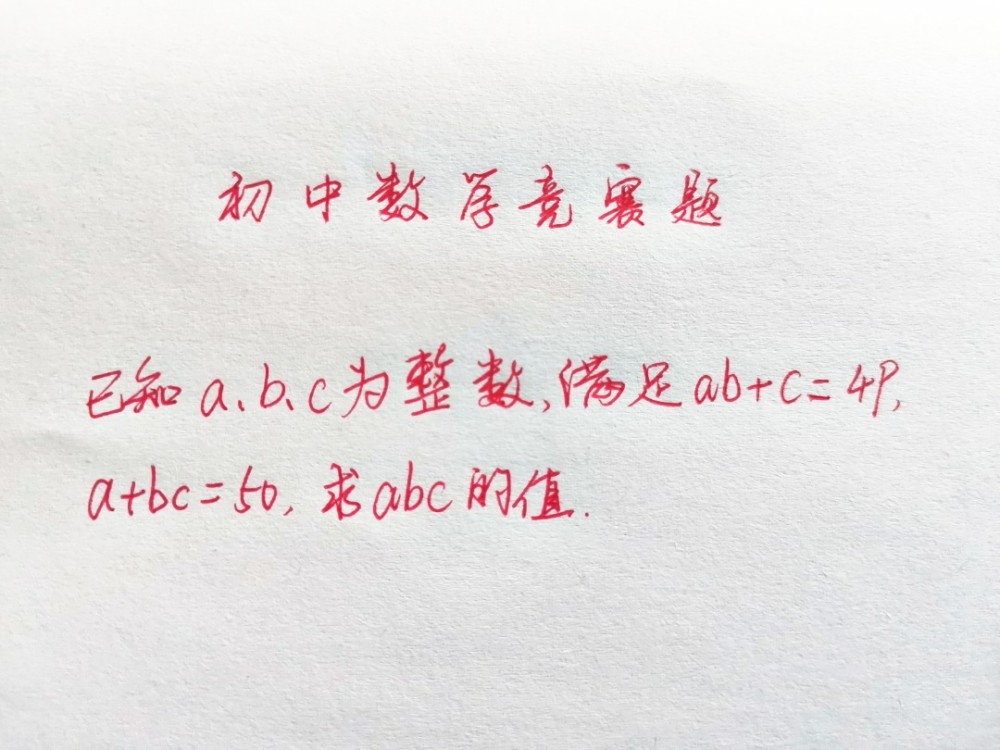 初中数学竞赛题
已知a、b、c为整数,满足ab+c=49,
a+bc=50,求abc的值.